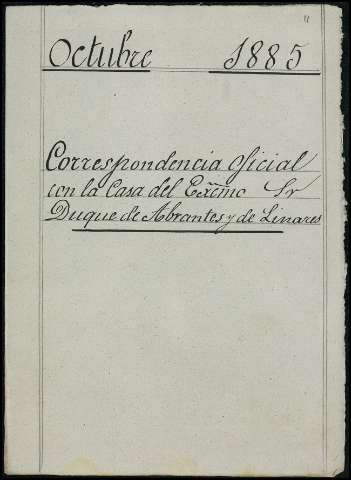 Octubre 1885
Correspondencia oficial
con la Casa del Exc̃mo Sr
Duque de Abrantes y de Linares